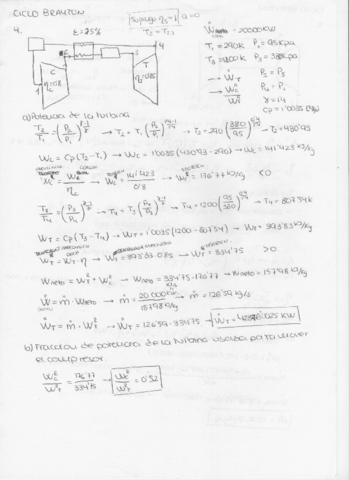 CICLO BRAYTON
4.
E = 75%
Supongo ηs = 1 Q = 0
T2 = T2s
Ẇneto = 20000 KW
T1 = 290K P1 = 95Kpa
T3 = 1200K P2 = 380Kpa
→ẆT P2 = P3
P4 = P1
γ = 1'4
a) Potencia de la turbina
T2/T1 = (P2/P1)^(γ-1/γ) → T2 = T1 (P2/P1)^(γ-1/γ) → T2 = 290 (380/95)^(0'4/1'4) → T2 = 430'93
Wc = Cp(T2 - T1) → Wc = 1'0035 (430'93 - 290) → Wc = 141'423 KJ/Kg
ηc → 141'423/0'8 → 176'77 KJ/Kg < 0
T3/T4 = (P3/P4)^(γ-1/γ) → T4 = T3 (P4/P3)^(γ-1/γ) → T4 = 1200 (95/380)^(0'4/1'4) → T4 = 807'54K
WT = Cp(T3 - T4) → WT = 1'0035 (1200 - 807'54) → WT = 393'83 KJ/Kg
WT = WT · η → WT = 393'83 · 0'85 → WT = 334'75 > 0
Wneto = WT + Wc → Wneto = 334'75 - 176'77 → Wneto = 157'98 KJ/Kg
Ẇ = ṁ · Wneto → ṁ = 20000 KW / 157'98 KJ/Kg → ṁ = 126'59 Kg/s
ẆT = ṁ · WT → ẆT = 126'59 · 334'75 → ẆT
b) Fracción de potencia de la turbina usada para mover
el compresor.
Wc/WT = 176'77/334'75 → Wc/WT = 0'52